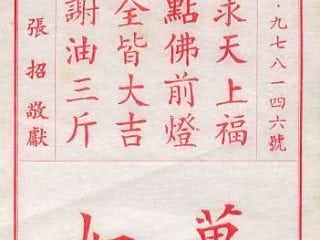 ．九七八一四六號
求天上福
點佛前燈
全皆大吉
謝油三斤
張招敬獻
萬
如